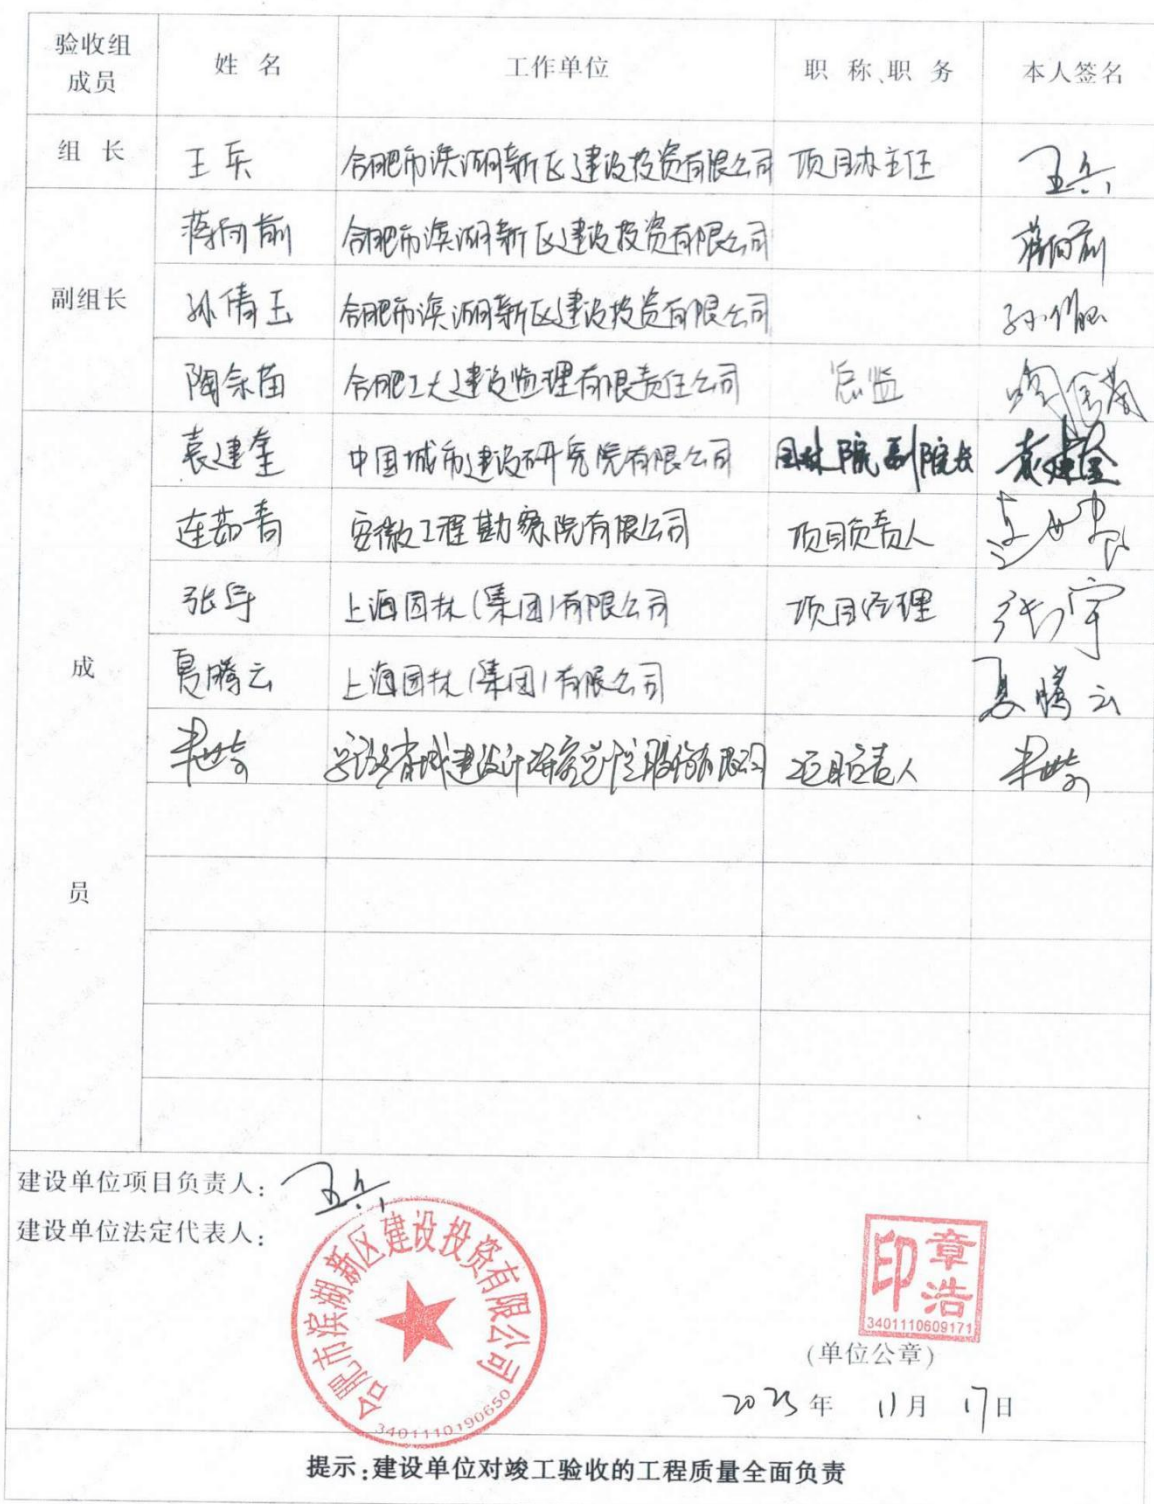 验收组成员 姓 名 工作单位 职 称、职 务 本人签名
组 长 王兵 合肥市滨湖新区建设投资有限公司 项目办主任 王兵
蒋向前 合肥市滨湖新区建设投资有限公司 蒋向前
副组长 孙倩玉 合肥市滨湖新区建设投资有限公司
合肥工大建设监理有限责任公司 总监
袁建奎 中国城市建设研究院有限公司 园林院副院长 袁建奎
连茹青 安徽工程勘察院有限公司 项目负责人
张宇 上海园林(集团)有限公司 项目经理 张宇
成 夏腾云 上海园林(集团)有限公司 夏腾云
安徽省城建设计研究总院股份有限公司 项目负责人
员
建设单位项目负责人: 王兵
建设单位法定代表人:
合肥市滨湖新区建设投资有限公司
3401110190650
章浩印
3401110609171
(单位公章)
2023年 11月 17日
提示:建设单位对竣工验收的工程质量全面负责